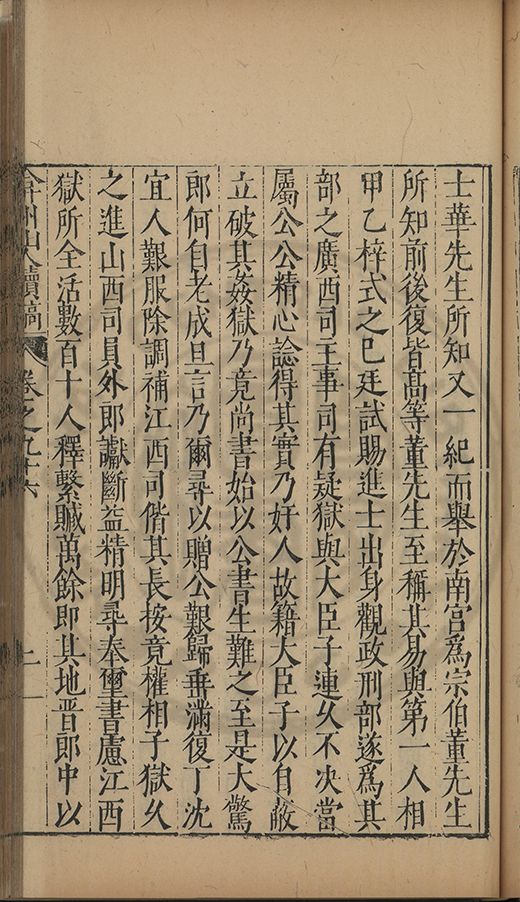 士華先生所知又一紀而舉於南宫爲宗伯董先生
所知前後復皆高等董先生至稱其易與第一人相
甲乙梓式之巳廷試賜進士出身觀政刑部遂爲其
部之廣西司主事司有疑獄與大臣子連久不决當
屬公公精心諗得其實乃奸人故籍大臣子以自蔽
立破其姦獄乃竟尚書始以公書生難之至是大驚
郎何自老成旦言乃爾尋以贈公艱歸垂滿復丁沈
宜人艱服除調補江西司偕其長按竟權相子獄久
之進山西司員外郎讞斷益精明尋奉璽書慮江西
獄所全活數百十人釋繫贓萬餘即其地晋郎中以
弇州山人續稿 卷之九十六 二